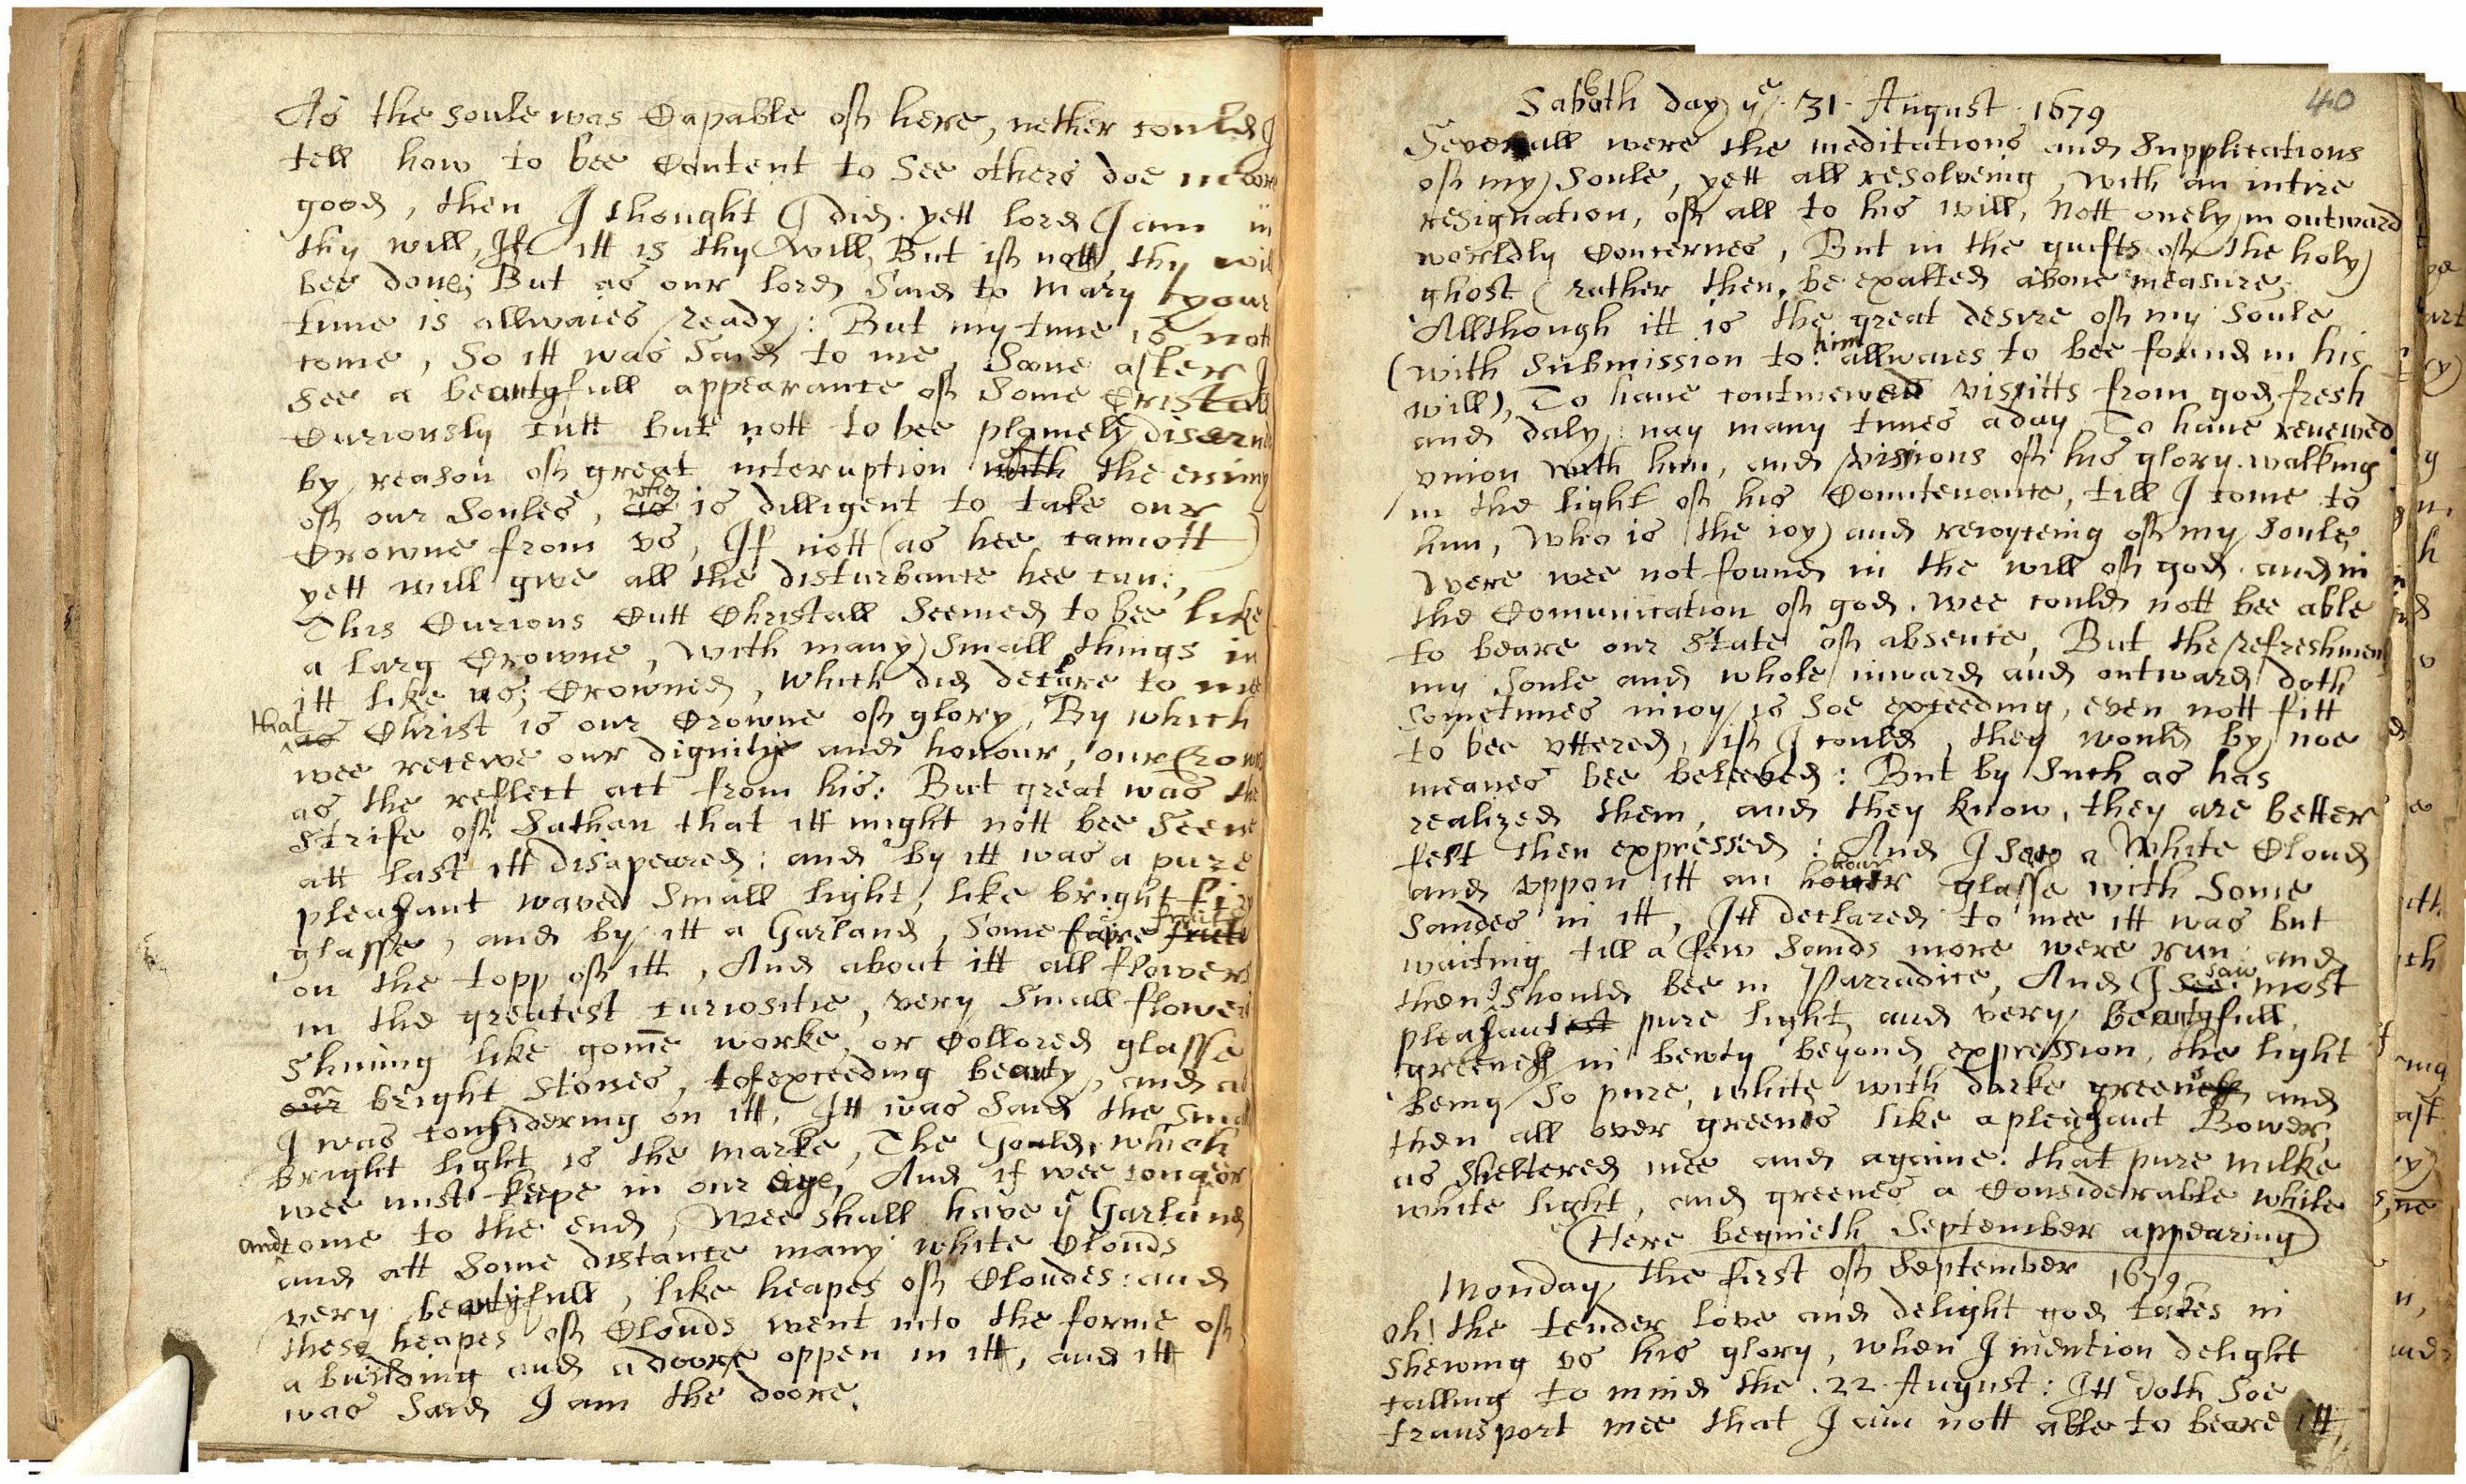 As the soule was Capable off here, nether could I
tell how to bee Content to See others doe moore
good, then I thought I did. yett lord I am in
thy will, If itt is thy will, But iff nott, thy will
bee done; But as our lord Said to Mary your
time is allwaies ready: But my time is nott
come, So itt was Said to me, Soone after I
See a beautyfull appearance off Some Cristall
Curiously cutt but nott to bee plainely discernd
by reason off great interuption with the enimy
off our Soules, who is dilligent to take our
Crowne from vs, If nott (as hee cannott)
yett will give all the disturbance hee can;
This Curious Cutt Christall Seemed to bee like
a larg Crowne, with many Small things in
itt like us; Crowned, which did declare to me
that as Christ is our Crowne off glory, By which
wee receive our dignitye and honour, our Crowns
as the reflect act from his: But great was the
Strife off Sathan that itt might nott bee Seene
att last itt disapeared: and by itt was a pure
pleasant waved Small light, like bright firy
glasse, and by itt a Garland, Some faire fruit
on the topp off itt, And about itt all flowers
in the greatest curiositie, very Small flowers
Shining like gome worke, or Collored glasse
our or bright Stones, off exceeding beauty, and as
I was considering on itt, Itt was Said the Small
bright light is the marke, The Goulde, which
wee must keepe in our eige, And if wee conqeor
and come to the end, Wee shall have ye Garland
and att Some distance many white Clouds
very beautyfull, like heapes off Cloudes: and
these heapes off Clouds went into the forme off
a building and a doore oppen in itt, and itt
was Said I am the doore.
40
Saboth day ye 31 August 1679
Severall were the meditations and Supplications
off my Soule, yett all resolveing, with an intire
resignation, off all to his will, Nott onely in outward
worldly Concernes, But in the guifts off the holy
ghost (rather then, be exalted above measure,
Allthough itt is the great desire off my Soule
(with Submission to him allwaies to bee found in his
will), To have continewed vissitts from god, fresh
and daly: nay many times aday, To have renewed
vnion with him, and vissions off his glory. walking
in the light off his Countenance, till I come to
him, Who is the ioy and reioyceing off my Soule
Were wee not found in the will off god. and in
the Comunication off god. wee could nott bee able
to beare our State off absence, But the refreshment
my Soule and whole inward and outward doth
Sometimes inioy is Soe exceeding, even nott fitt
to bee vttered, iff I could, they would by noe
meanes bee beleeved: But by Such as has
realized them, and they know, they are better
felt then expressed: And I Saw a White Cloud
and vppon itt an hour glasse with Some
Sandes in itt, Itt declared to mee itt was but
waiting till a few Sands more were run and
then I Should bee in Parradice, And I See saw most
pleasantest pure light and very beautyfull
greeness in bewty beyond expression, the light
being So pure, white, with darke greenes and
then all over greenes like a pleasant Bower,
as Sheltered mee and againe. that pure milke
white light, and greenes a Considerable while
Here begineth September appearing
Monday the first off September 1679
oh! the tender love and delight god takes in
Shewing vs his glory, when I mention delight
calling to mind the 22 August: Itt doth Soe
transport mee that I am nott able to beare itt,